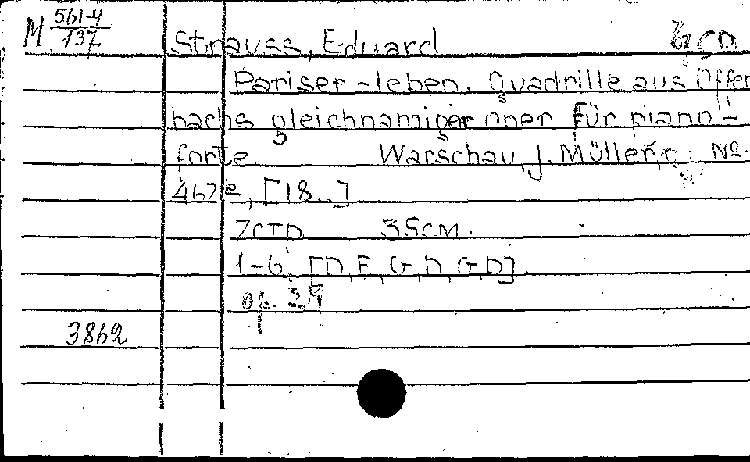 M 561-4/137
Strauss, Eduard
Pariser-leben. Quadrille aus Offen
bachs gleichnamiger oper für piano-
forte Warschau, J. Müller, № 
467e, [18..]
7стр 35см.
1-6. [D, F, G, D, G, D]
op. 24
3862